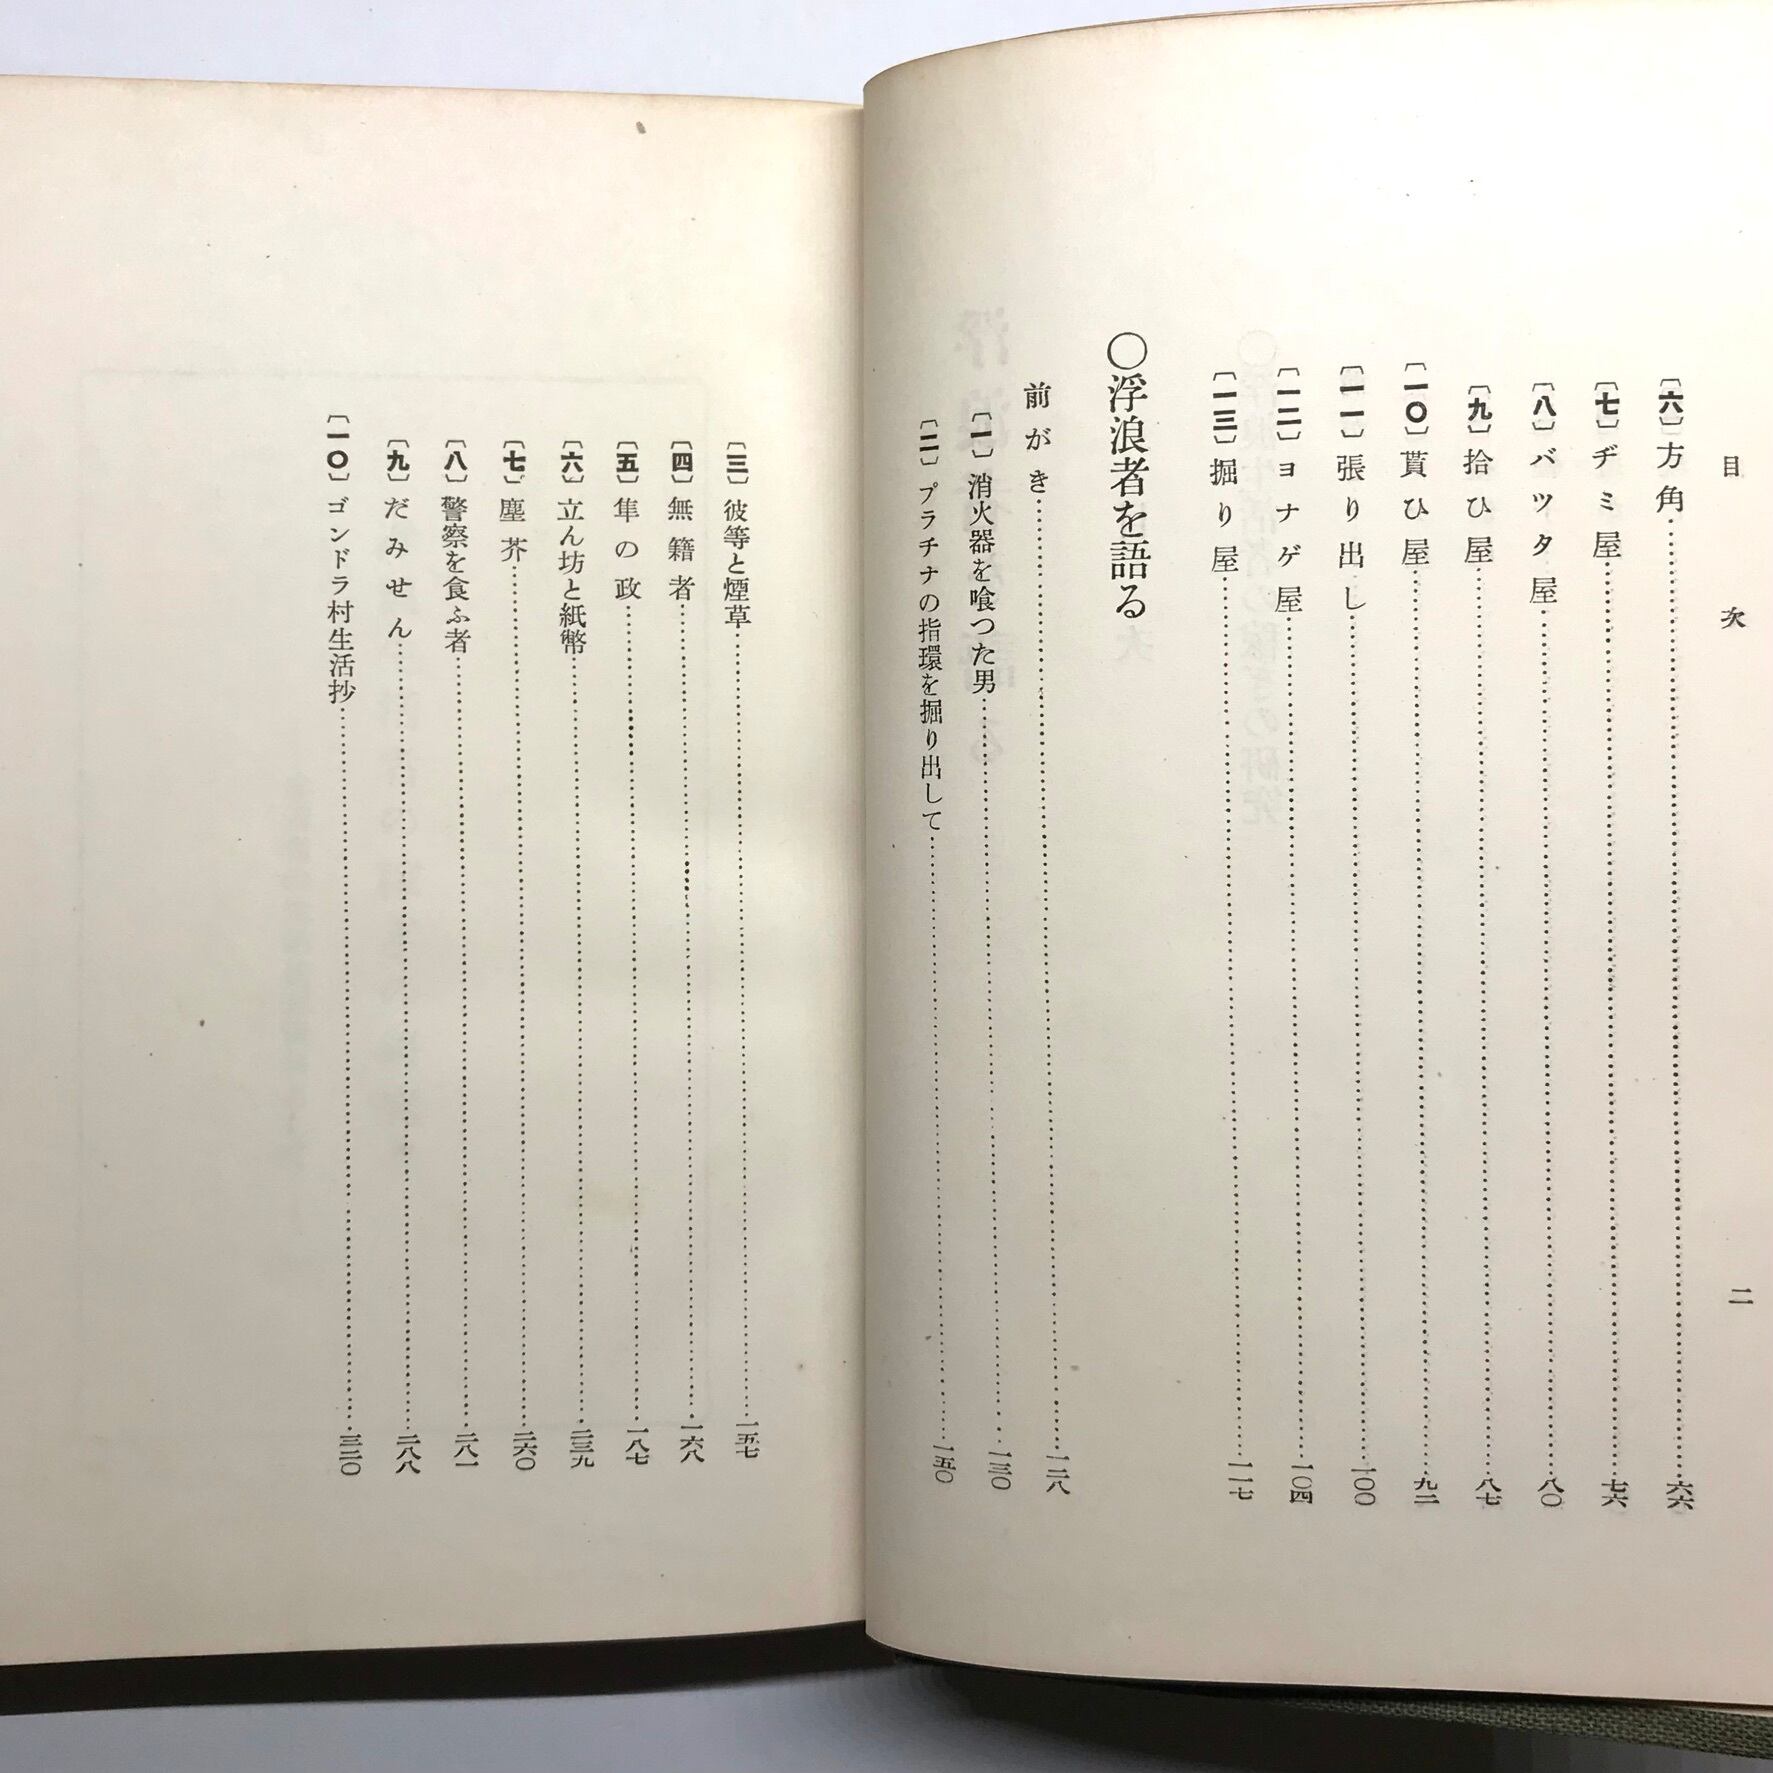 目次
二
〔六〕方角……六六
〔七〕ヂミ屋……七六
〔八〕バツタ屋……八〇
〔九〕拾ひ屋……八七
〔一〇〕貰ひ屋……九二
〔一一〕張り出し……一〇〇
〔一二〕ヨナゲ屋……一〇四
〔一三〕掘り屋……一一七
〇浮浪者を語る
前がき……一二八
〔一〕消火器を喰つた男……一三〇
〔二〕プラチナの指環を掘り出して……一五〇
〔三〕彼等と煙草……一五七
〔四〕無籍者……一六八
〔五〕隼の政……一八七
〔六〕立ん坊と紙幣……二三九
〔七〕塵芥……二六〇
〔八〕警察を食ふ者……二八一
〔九〕だみせん……二八八
〔一〇〕ゴンドラ村生活抄……三二〇